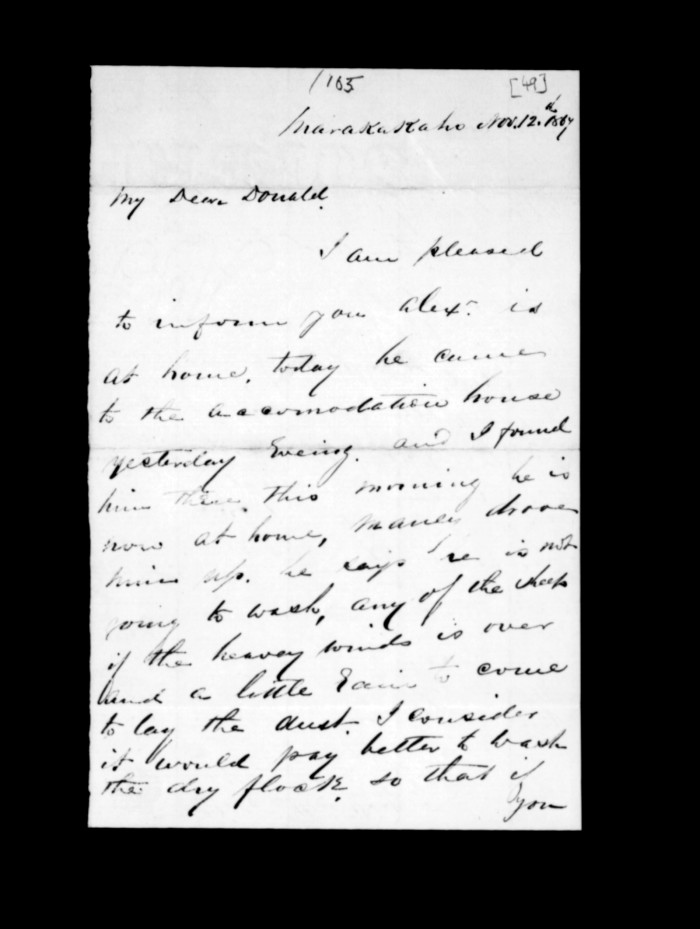 165 [49]
Marakakaho Nov. 12. 1867
My Dear Donald.
I am pleased
to inform you Alexr. is
at home. today he came
to the accomodation house
yesterday Eveing. and I found
him there. this morning he is
now at home, Maney drove
him up. he says he is not
going to wash, any of the sheep
if the heavey winds is over
and a little Rain to come
to lay the dust. I consider
it would pay better to wash
the dry flock. so that if
you